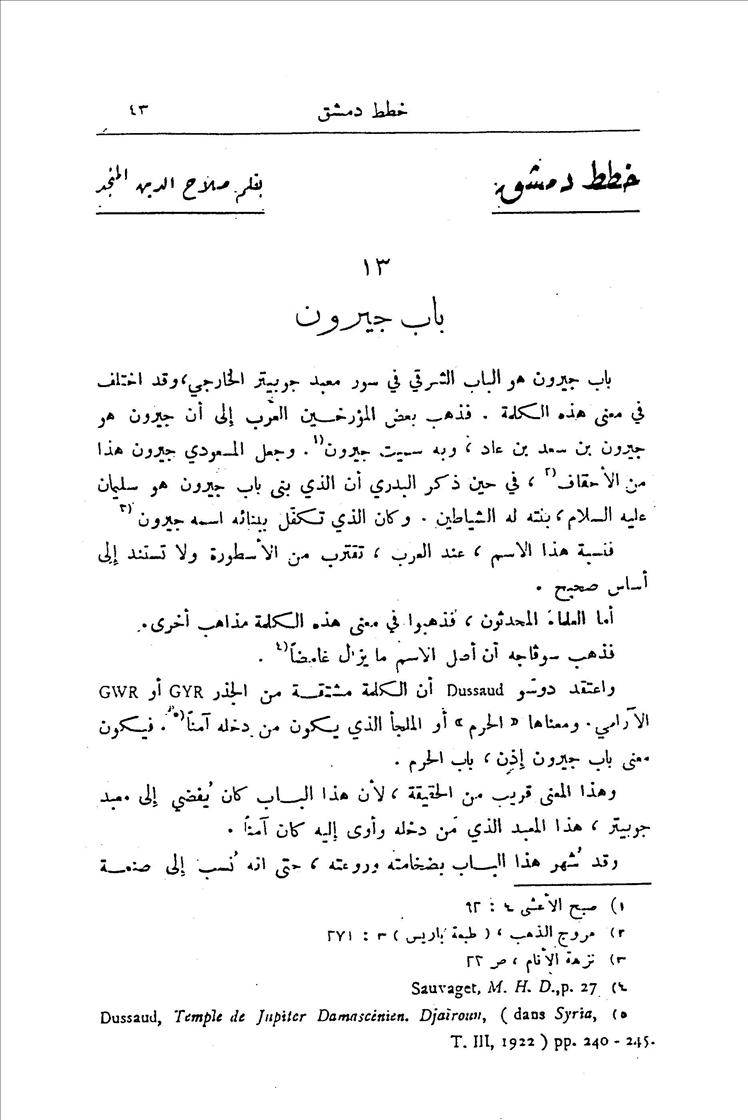 خطط دمشق ٤٣
خطط دمشق
بقلم صلاح الدين المنجد
١٣
باب جيرون
باب جيرون هو الباب الشرقي في سور معبد جوبيتر الخارجي، وقد اختلف
في معنى هذه الكلمة . فذهب بعض المؤرخـين العرب إلى أن جيرون هو
جيرون بن سعد بن عاد ، وبه سميت جيرون(١ . وجعل المسعودي جيرون هذا
من الأحقاف(٢ ، في حين ذكر البدري أن الذي بنى باب جيرون هو سليمان
عليه السلام ، بنته له الشياطين . وكان الذي تكفّل ببنائه اسمه جيرون(٣
فنسبة هذا الاسم ، عند العرب ، تقترب من الأسطورة ولا تستند إلى
أساس صحيح .
أما العلماء المحدثون ، فذهبوا في معنى هذه الكلمة مذاهب أخرى.
فذهب سوڤاجه أن أصل الاسم ما يزال غامضاً(٤ .
واعتقد دوسّو Dussaud أن الكلمة مشتقـــة من الجذر GYR أو GWR
الآرامي. ومعناها « الحرم » أو الملجأ الذي يكون من دخله آمناً(٥ . فيكون
معنى باب جيرون إذن ، باب الحرم .
وهذا المعنى قريب من الحقيقة ، لأن هذا البـاب كان يُفضي إلى معبد
جوبيتر ، هذا المعبد الذي مَن دخله وأوى إليه كان آمناً .
وقد شُهر هذا البـاب بضخامته وروعته ، حتى انه نُسب إلى صنعـة
١) صبح الأعشى ٤ : ٩٢
٢) مروج الذهب ، ( طبعة باريس ) ٣ : ٢٧١
٣) نزهة الأنام ، ص ٢٢
٤) Sauvaget, M. H. D.,p. 27
٥) Dussaud, Temple de Jupiter Damascénien. Djaïroun, ( dans Syria,
T. III, 1922 ) pp. 240 - 245.